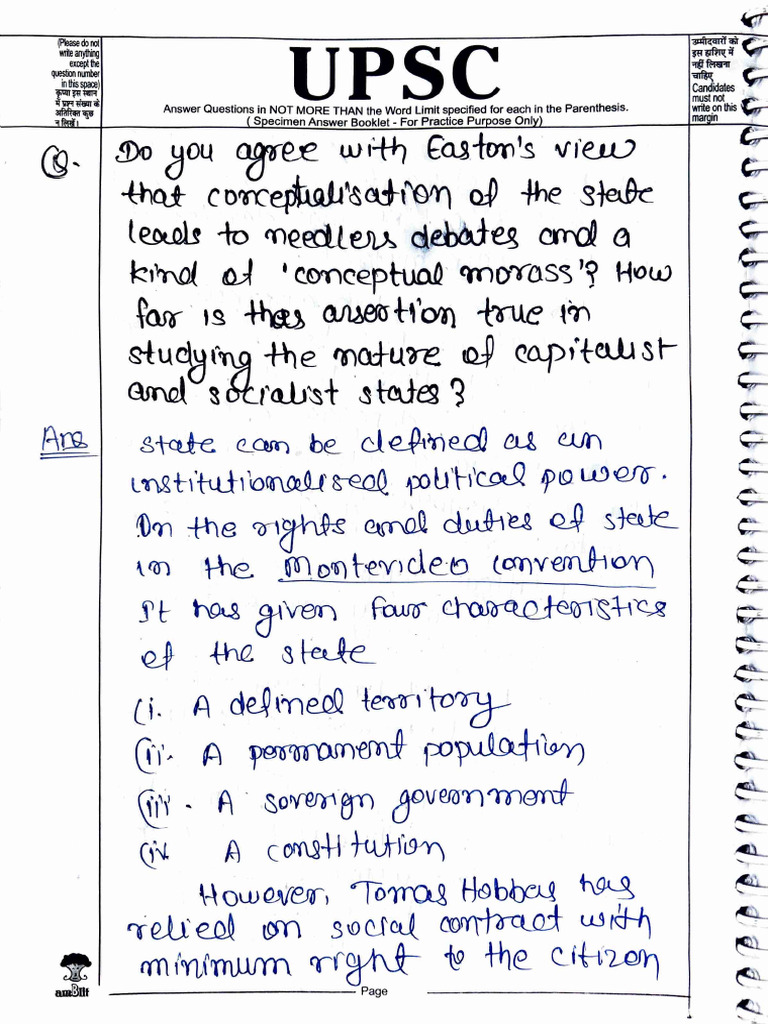 (Please do not
write anything
except the
question number
in this space)
कृप्या इस स्थान
में प्रश्न संख्या के
अतिरिक्त कुछ
न लिखें।
UPSC
Answer Questions in NOT MORE THAN the Word Limit specified for each in the Parenthesis.
( Specimen Answer Booklet - For Practice Purpose Only)
उम्मीदवारों को
इस हाशिए में
नहीं लिखना
चाहिए
Candidates
must not
write on this
margin
Q. Do you agree with Easton's view
that conceptualisation of the state
leads to needless debates and a
kind of 'conceptual morass'? How
far is this assertion true in
studying the nature of capitalist
and socialist states?
Ans state can be defined as an
institutionalised political power.
On the rights and duties of state
in the Montevideo convention
It has given four characteristics
of the state
(i. A defined territory
(ii). A permanent population
(iii) . A soverign government
(iv. A constitution
However, Tomas Hobbas has
relied on social contract with
minimum right to the citizen
amBIIt
Page